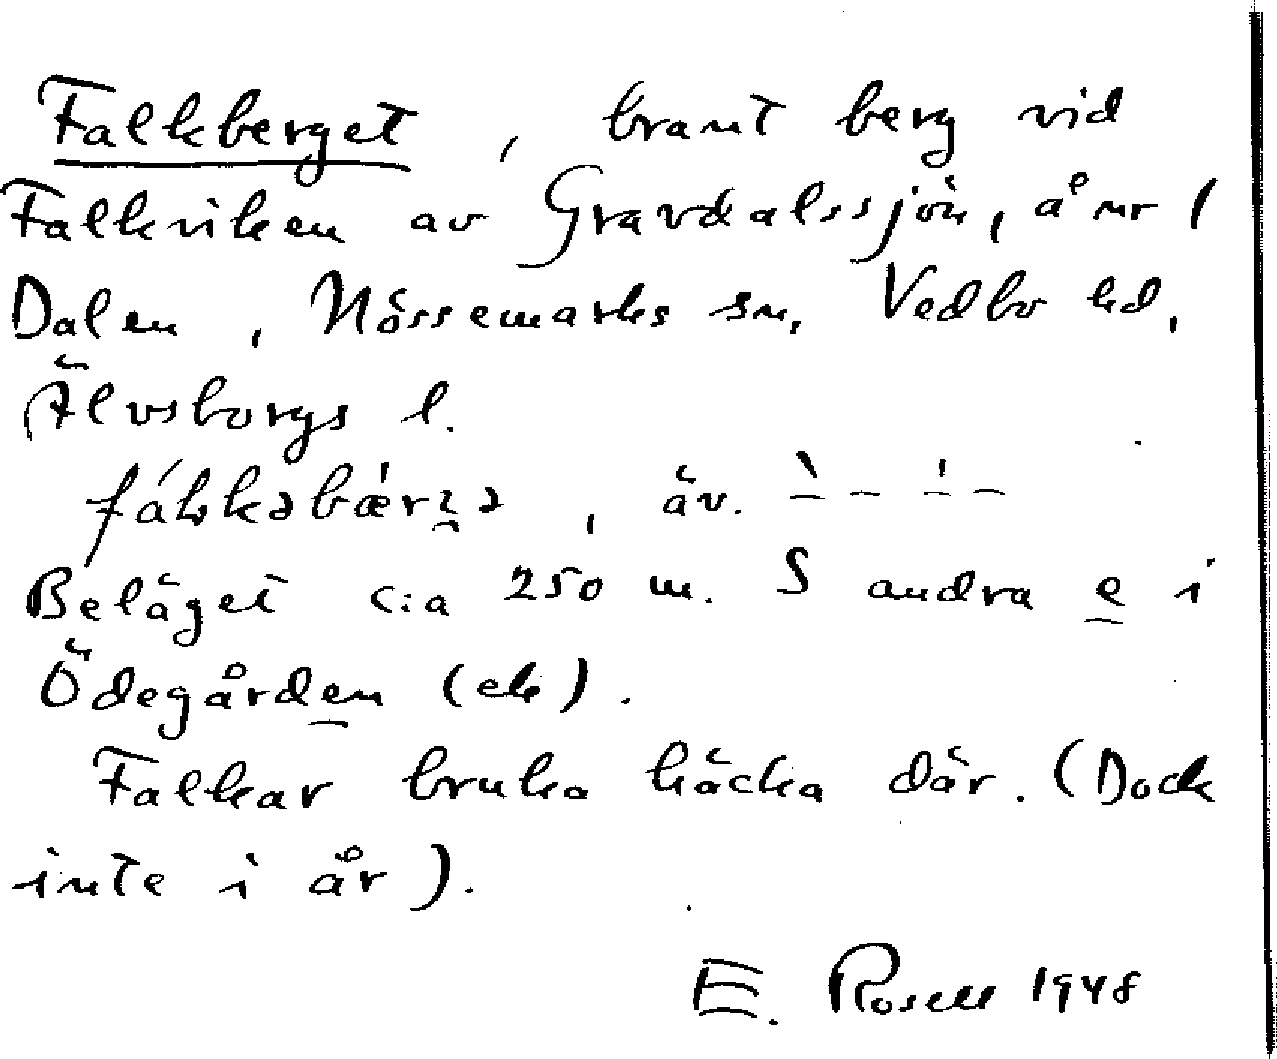 Falkberget, brant berg vid
Falkviken av Gravdalssjön, å nr 1
Dalen, Nössemarks sn, Vedbo hd,
Älvsborgs l.
, äv. –̀ – –́ –
Beläget c:a 250 m. S andra e i
Ödegården (ek).
Falkar bruka häcka där. (Dock
inte i år).
E. Rosell 1948